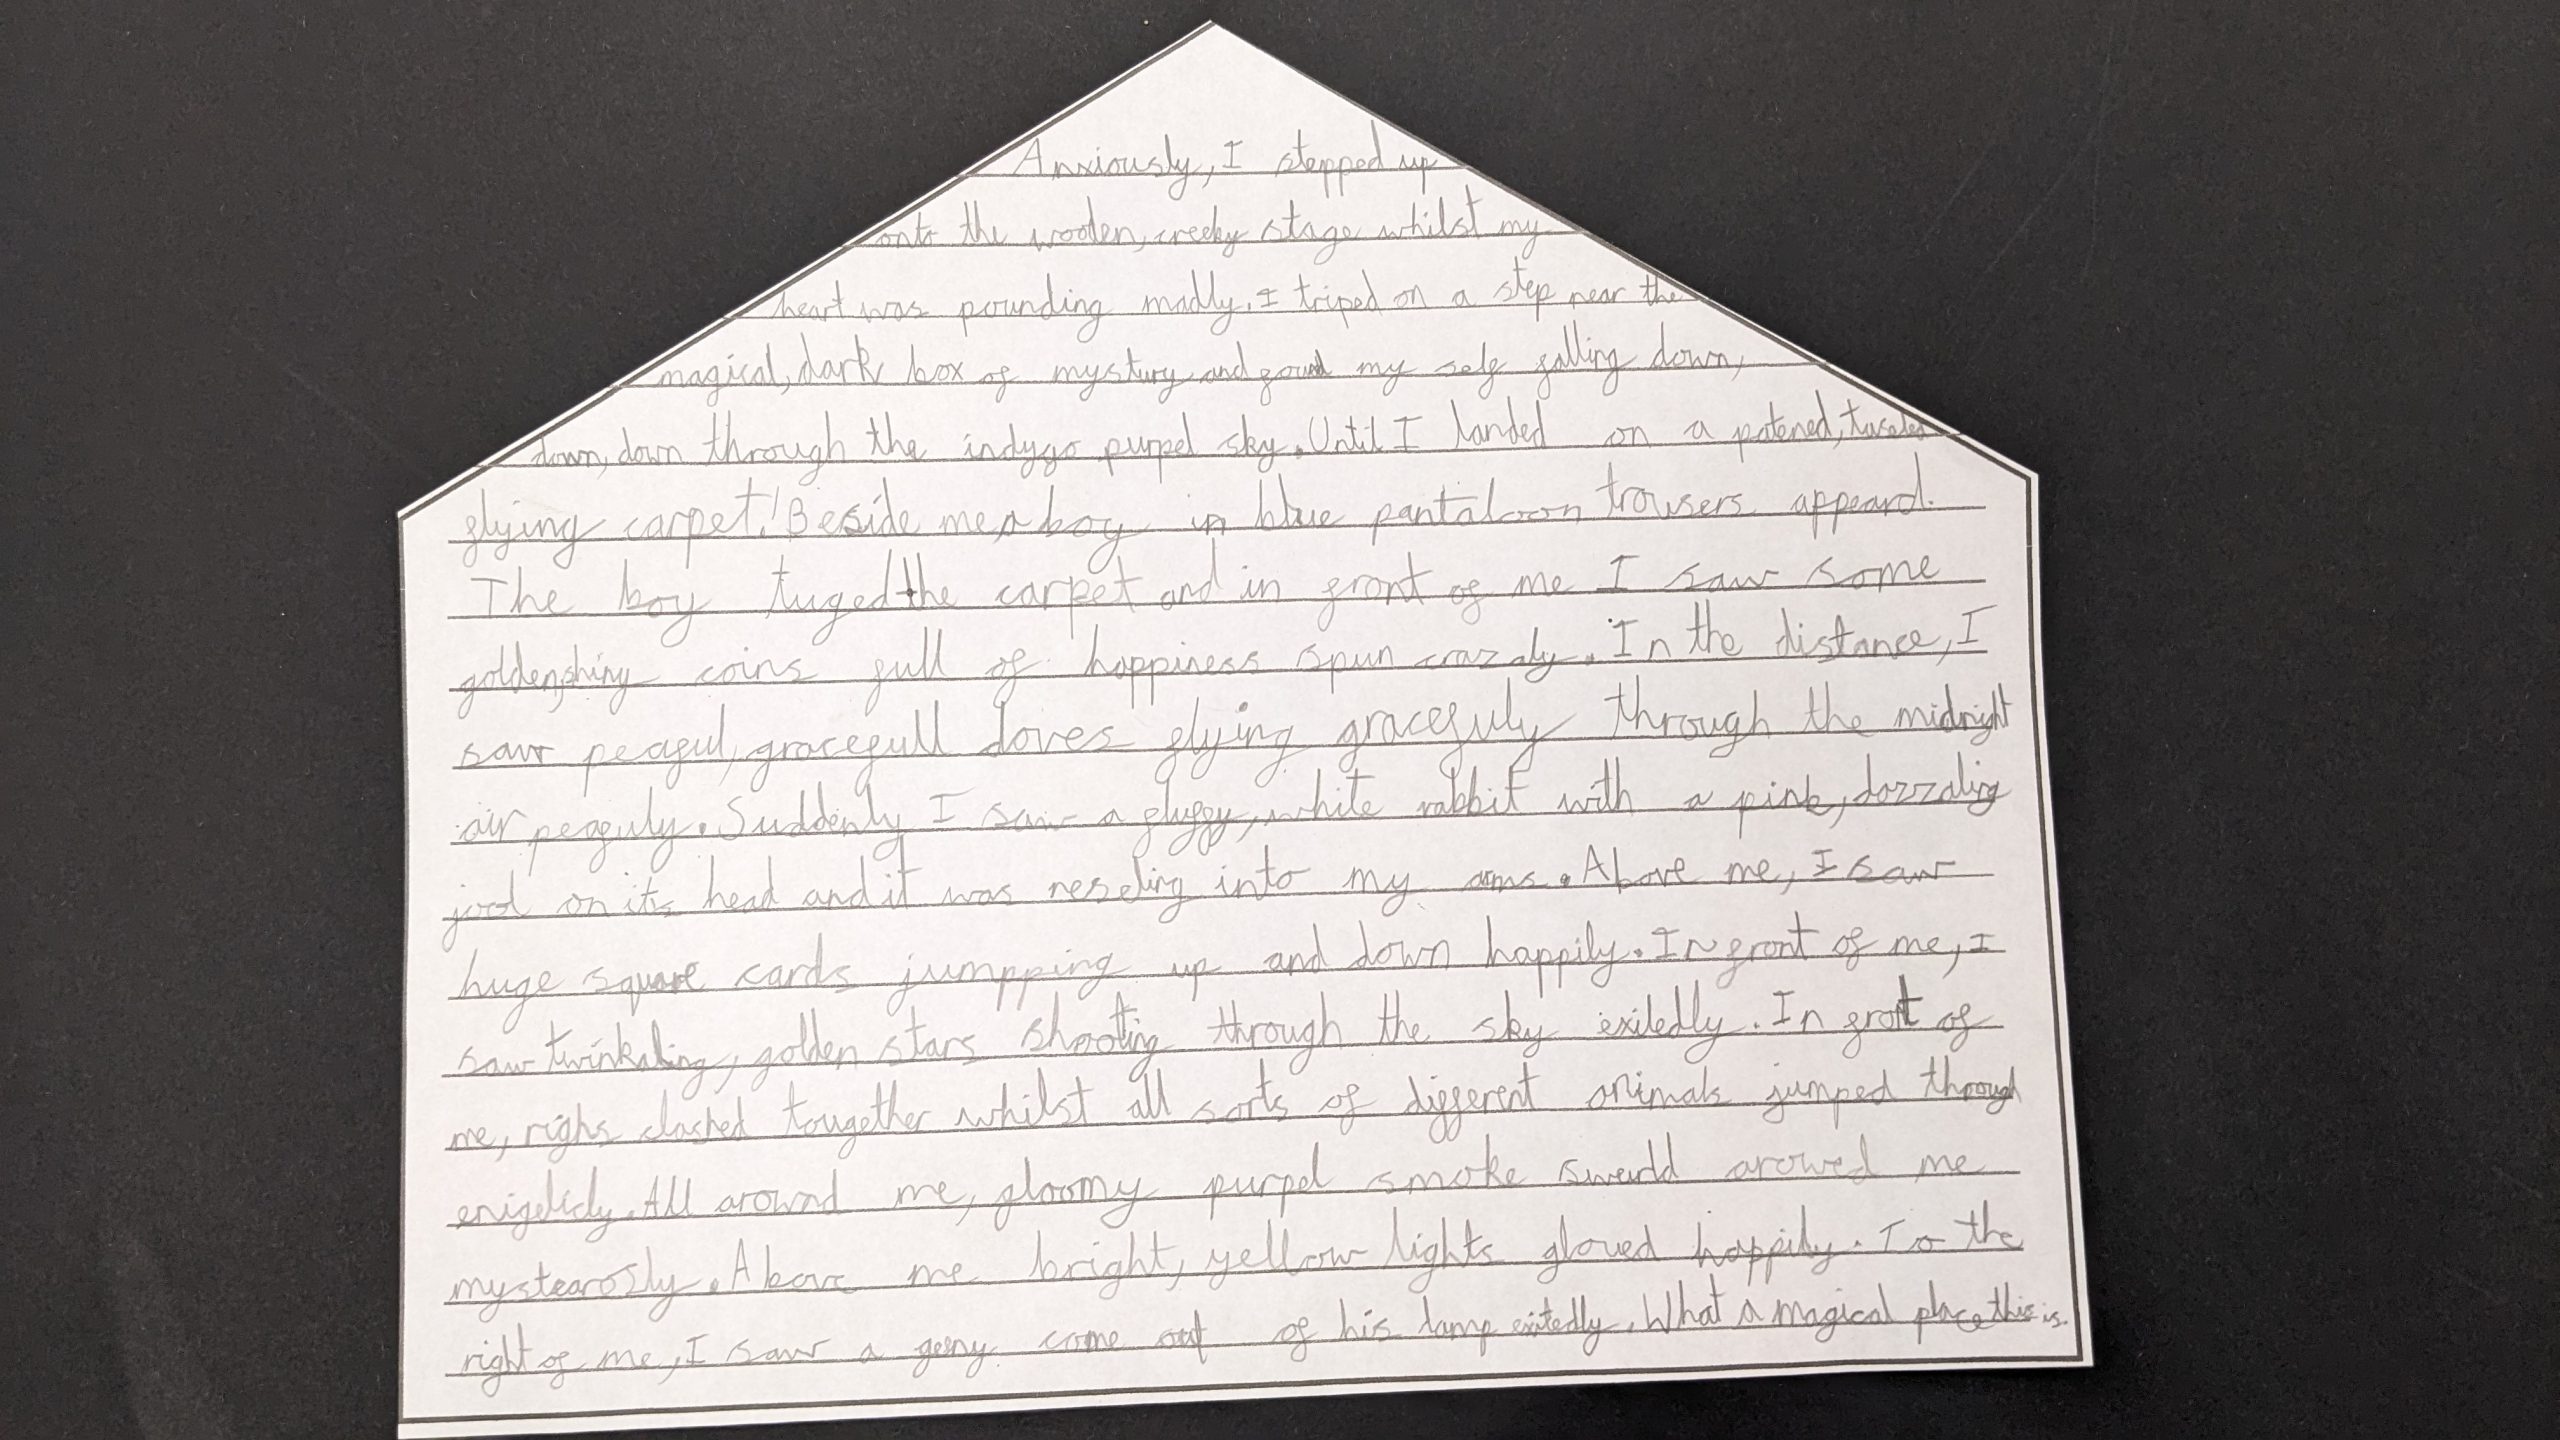 Anxiously, I stepped up
onto the wooden, creeky stage whilst my
heart was pounding madly. I triped on a step near the
magical, dark box of mystury and found my self falling down,
down, down through the indygo purpel sky. Until I landed on a patened, tasseled
flying carpet! Beside me a boy in blue pantaloon trousers appeard.
The boy tuged the carpet and in front of me I saw some
golden, shiny coins full of happiness spun crazaly. In the distance, I
saw peaful, gracefull doves flying gracefuly through the midnight
air peafuly. Suddenly I saw a fluffy, white rabbit with a pink, dazzaling
jool on its head and it was neseling into my arms. Above me, I saw
huge square cards jumpping up and down happily. In front of me, I
saw twinkaling, golden stars shooting through the sky exitedly. In frot of
me, righs clashed tougether whilst all sorts of different animals jumped through
enigeticly. All around me, gloomy purpel smoke swurld arowed me
mystearosly. Above me bright, yellow lights gloued happily. To the
right of me, I saw a geeny come out of his lamp exitedly. What a magical place this is.